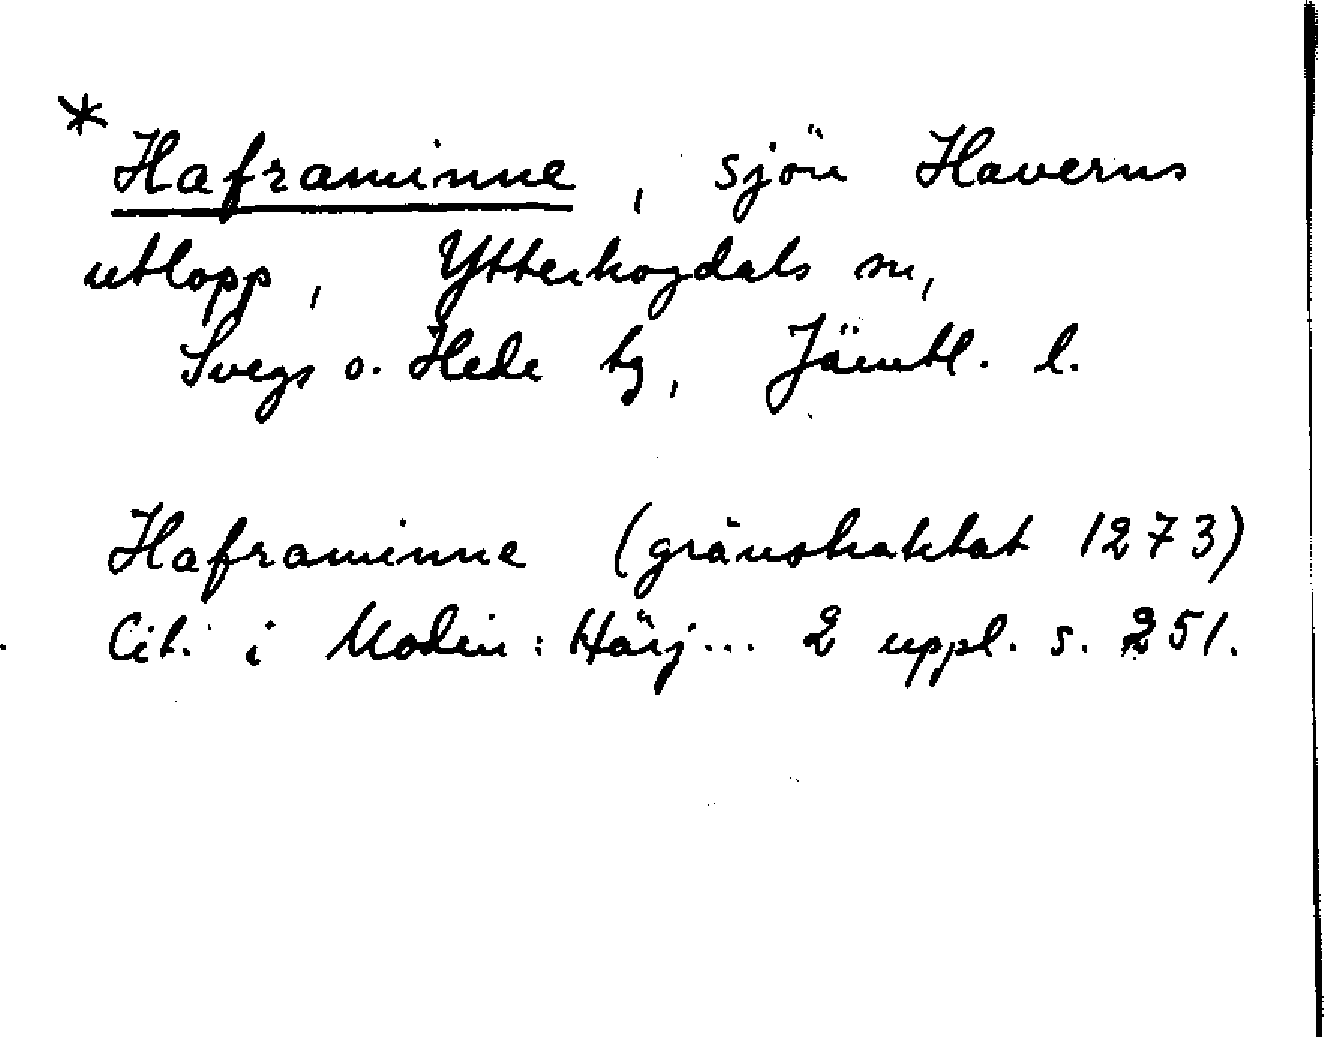 * Haframinne, sjön Haverns
utlopp, Ytterhogdals sn,
Svegs o. Hede tg, Jämtl. l.
Haframinne (gränstraktat 1273)
Cit. i Modin: Härj... 2 uppl. s. 251.